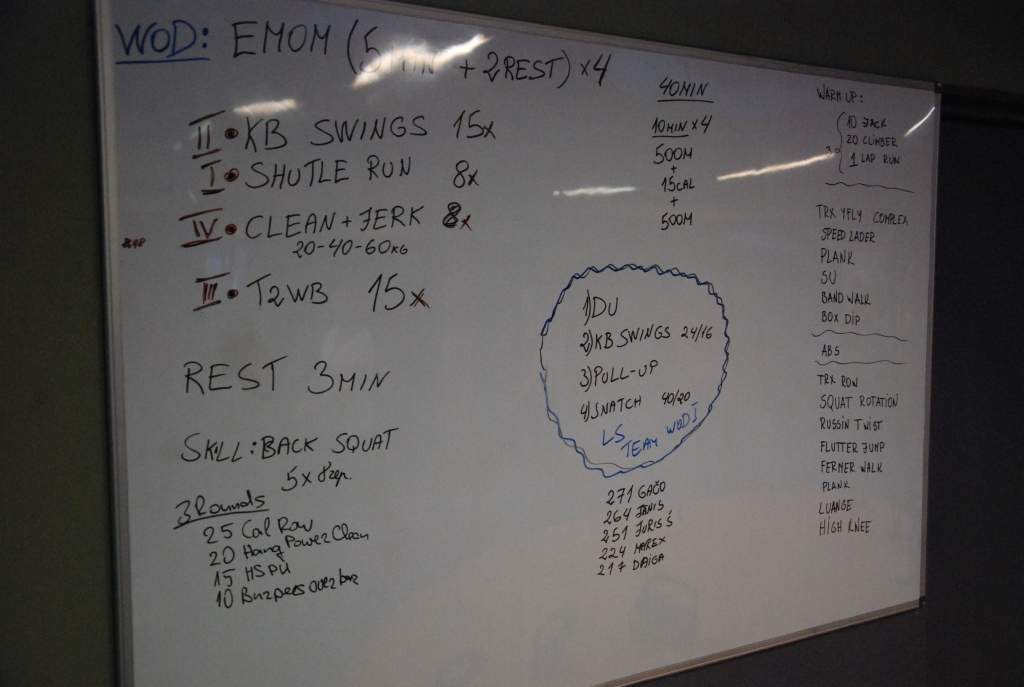 WOD: EMOM (5 MIN + 2 REST) x 4
II • KB SWINGS 15x
I • SHUTLE RUN 8x
IV • CLEAN + JERK 8x
20-40-60 KG
III • T2WB 15x
REST 3 MIN
SKILL: BACK SQUAT
5 x 8 rep.
3 Rounds
25 Cal Row
20 Hang Power Clean
15 HSPU
10 Burpees over bar
40 MIN
10 MIN x 4
500M
+
15 CAL
+
500M
1) DU
2) KB SWINGS 24/16
3) PULL-UP
4) SNATCH 40/20
LS
TEAM WOD I
271 GAČO
264 JANIS
251 JURIS Š
224 MAREX
217 DAIGA
WARM UP:
10 JACK
20 CLIMBER
1 LAP RUN
TRX YFLY COMPLEX
SPEED LADER
PLANK
SU
BAND WALK
BOX DIP
ABS
TRX ROW
SQUAT ROTATION
RUSSIN TWIST
FLUTTER JUMP
FERMER WALK
PLANK
LUANGE
HIGH KNEE